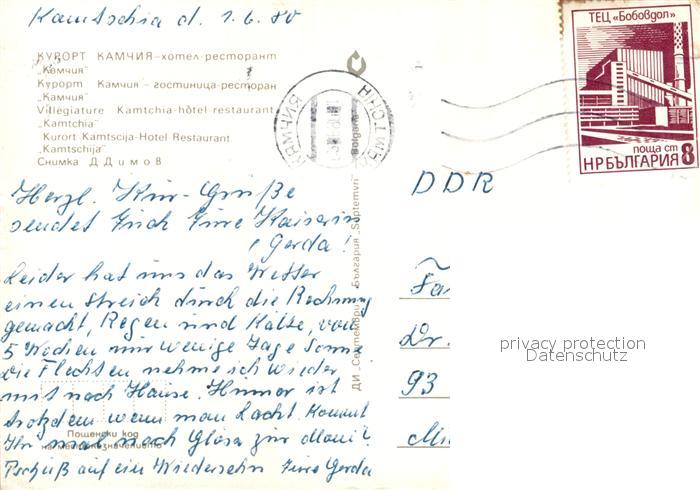 Kamtschia d. 1.6.80
КУРОРТ КАМЧИЯ-хотел-ресторант
„Камчия"
Курорт Камчия-гостиница-ресторан
„Камчия"
Villégiature Kamtchia-hôtel-restaurant
„Kamtchia"
Kurort Kamtscija-Hotel Restaurant
„Kamtschija"
Снимка Д Димов
Herzl. Kur-Grüße
sendet Euch Eure Kaiserin
Gerda!
Leider hat uns das Wetter
einen Streich durch die Rechnung
gemacht, Regen und Kälte, von
5 Wochen nur wenige Tage Sonne
die Flechten nehme ich wieder
mit nach Hause. Humor ist
trotzdem wenn man lacht. Kommt
Ihr mal nach Glösa zur
Tschüß auf ein Wiedersehn Eure Gerda
Пощенски код
на местоназначението
ДИ „Септември" България „Septemvri" Bulgaria
КАМЧИЯ
ТЕЦ „Бобовдол"
поща ст 8
НР БЪЛГАРИЯ
DDR
Dr.
93
privacy protection
Datenschutz